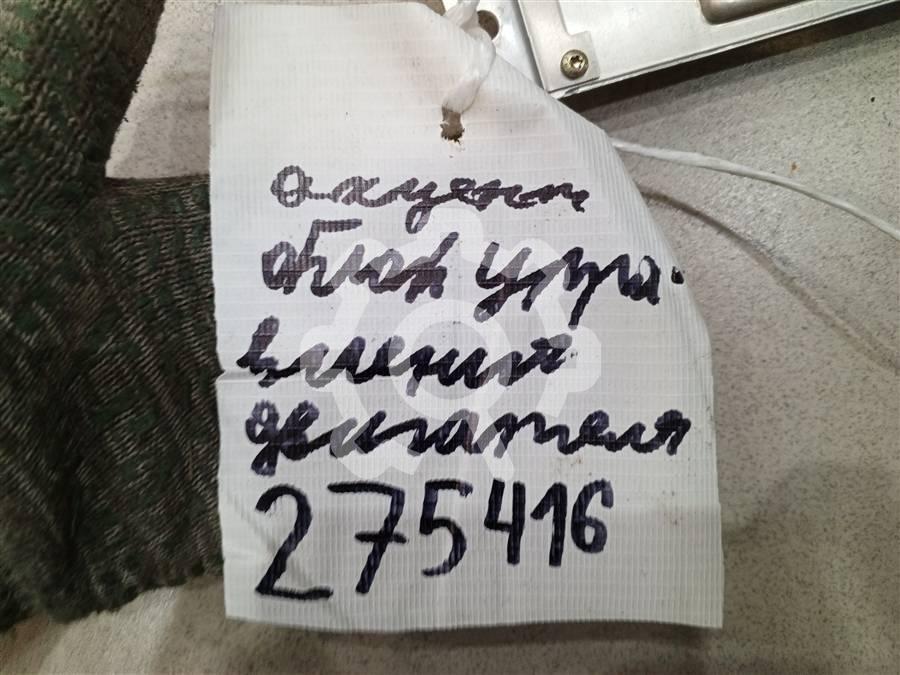 акцент
блок упра-
вления
двигателя
275416